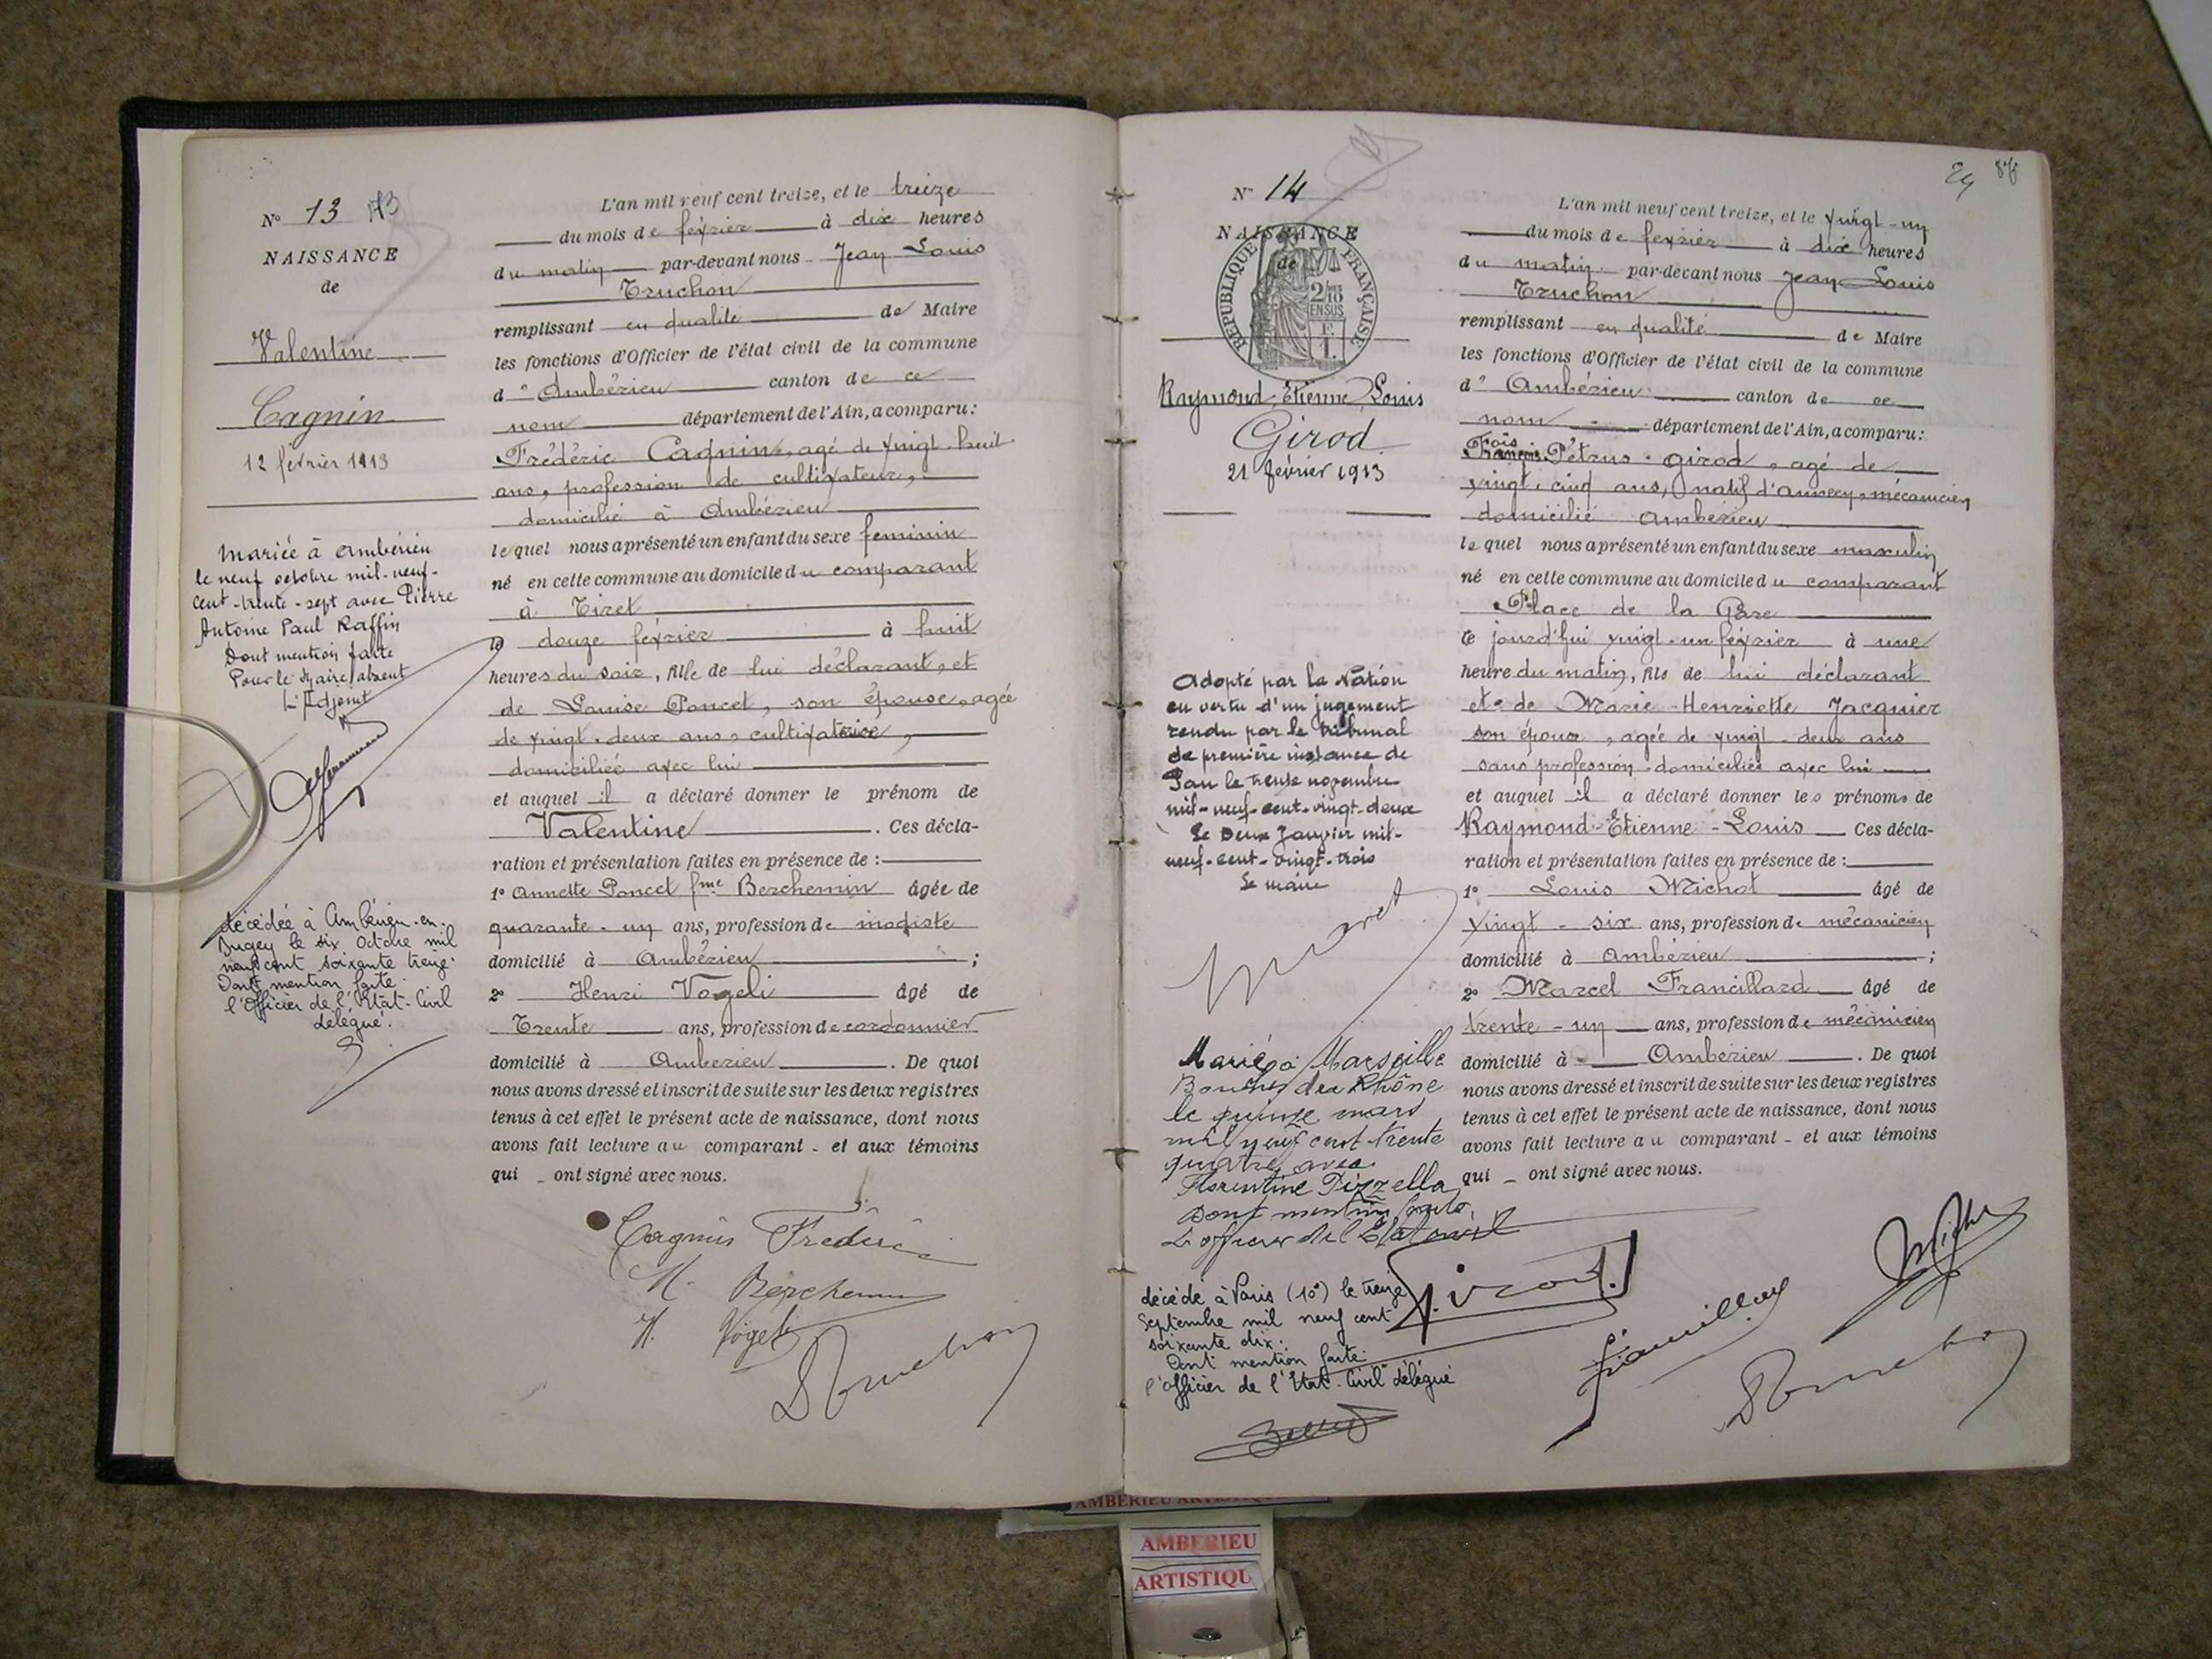 N° 13 13
NAISSANCE
de
Valentine
Cagnin
12 février 1913
Mariée à Ambérieu
le neuf octobre mil-neuf-
cent-trente-sept avec Pierre
Antoine Paul Raffin
Dont mention faite
Pour le Maire absent
L'Adjoint
décédée à Ambérieu-en-
Bugey le six Octobre mil
neuf cent soixante treize.
Dont mention faite.
l'Officier de l'Etat-Civil
délégué.
L'an mil neuf cent treize, et le treize
du mois de février à dix heures
du matin par-devant nous Jean Louis
Truchon
remplissant en qualité de Maire
les fonctions d'Officier de l'état civil de la commune
d'Ambérieu canton de ce
nom département de l'Ain, a comparu:
Frédéric Cagnin, agé de vingt-huit
ans, profession de cultivateur,
domicilié à Ambérieu
lequel nous a présenté un enfant du sexe feminin
né en cette commune au domicile du comparant
à Tiret
le douze février à huit
heures du soir, fille de lui déclarant, et
de Louise Poncet, son épouse, agée
de vingt-deux ans, cultivatrice,
domiciliée avec lui
et auquel il a déclaré donner le prénom de
Valentine. Ces décla-
ration et présentation faites en présence de :
1° Annette Poncet fme Berchemin âgée de
quarante-un ans, profession de modiste
domicilié à Ambérieu ;
2° Henri Vogeli âgé de
Trente ans, profession de cordonnier
domicilié à Ambérieu. De quoi
nous avons dressé et inscrit de suite sur les deux registres
tenus à cet effet le présent acte de naissance, dont nous
avons fait lecture au comparant - et aux témoins
qui - ont signé avec nous.
Cagnin Frédéric
Berchemin
H. Vogeli
Truchon
24
N° 14
NAISSANCE
de
REPUBLIQUE FRANÇAISE
2/10
EN SUS
F.
1.
Raymond, Etienne, Louis
Girod
21 février 1913
Adopté par la Nation
en vertu d'un jugement
rendu par le tribunal
de première instance de
le novembre
mil-neuf-cent-vingt-deux
Le Deux Janvier mil-
neuf-cent-vingt-trois
Le maire
Marié à Marseille
Bouches du Rhône
le quinze mars
mil neuf cent trente
quatre avec
Florentine Pizzella
Dont mention faite,
L'officier de l'Etat civil
décédé à Paris (10°) le treize
Septembre mil neuf cent
soixante dix.
Dont mention faite.
l'Officier de l'Etat-Civil délégué
L'an mil neuf cent treize, et le vingt-un
du mois de février à dix heures
du matin par-devant nous Jean Louis
Truchon
remplissant en qualité de Maire
les fonctions d'Officier de l'état civil de la commune
d'Ambérieu canton de ce
nom département de l'Ain, a comparu:
Fois
Pétrus Girod, agé de
vingt-cinq ans, natif d'Annecy, mécanicien
domicilié Ambérieu
lequel nous a présenté un enfant du sexe masculin
né en cette commune au domicile du comparant
Place de la Gare
ce jourd'hui vingt-un février à une
heure du matin, fils de lui déclarant
et de Marie-Henriette Jacquier
son épouse, agée de vingt-deux ans
sans profession domiciliée avec lui
et auquel il a déclaré donner les prénoms de
Raymond-Etienne-Louis Ces décla-
ration et présentation faites en présence de :
1° Louis Michot âgé de
vingt-six ans, profession de mécanicien
domicilié à Ambérieu ;
2° Marcel Francillard âgé de
trente-un ans, profession de mécanicien
domicilié à Ambérieu. De quoi
nous avons dressé et inscrit de suite sur les deux registres
tenus à cet effet le présent acte de naissance, dont nous
avons fait lecture au comparant - et aux témoins
qui - ont signé avec nous.
Girod.
Truchon
AMBERIEU
ARTISTIQU